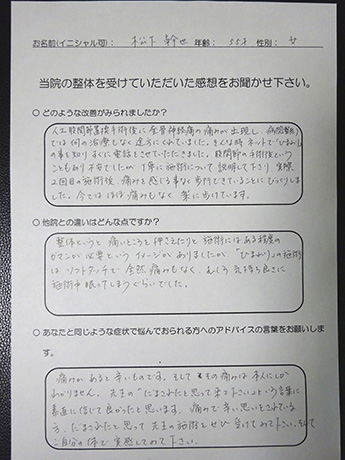 お名前(イニシャル可): 松下 幹世 年齢: 55才 性別: 女
当院の整体を受けていただいた感想をお聞かせ下さい。
○ どのような改善がみられましたか?
人工股関節置換手術後に坐骨神経痛の痛みが出現し、病院
では何の治療もなく途方にくれていました。そんな時ネットで「ひまわり」
の事を知りすぐに電話させていただきました。股関節の手術後という
こともあり不安でしたが、丁寧に施術について説明して下さり、実際
2回目の施術後、痛みを感じる事なく歩行できていることにびっくりしま
した。今ではほぼ痛みもなく楽に歩けています。
○ 他院との違いはどんな点ですか?
整体というと痛いところを押さえたりと施術にはある程度の
ガマンが必要というイメージがありましたが「ひまわり」の施術
はソフトタッチで全然痛みもなく、むしろ気持ち良さに
施術中眠ってしまうぐらいでした。
○ あなたと同じような症状で悩んでおられる方へのアドバイスの言葉をお願いしま
す。
痛みがあると辛いものです。そしてその痛みは本人にしか
わかりません。先生の"だまされたと思って来て下さい"という言葉に
素直に信じて良かったと思います。痛みで辛い思いをされている
方、だまされたと思って先生の施術をぜひ受けてみて下さい。そして
ご自分の体で実感してみて下さい。